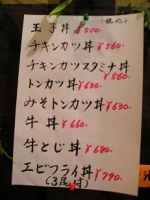 (税込)
玉子丼 ¥500.
チキンカツ丼 ¥560.
チキンカツスタミナ丼 ¥560.
トンカツ丼 ¥630.
みそトンカツ丼 ¥630.
牛丼 ¥660.
牛とじ丼 ¥680.
エビフライ丼 ¥790.
(3尾付)